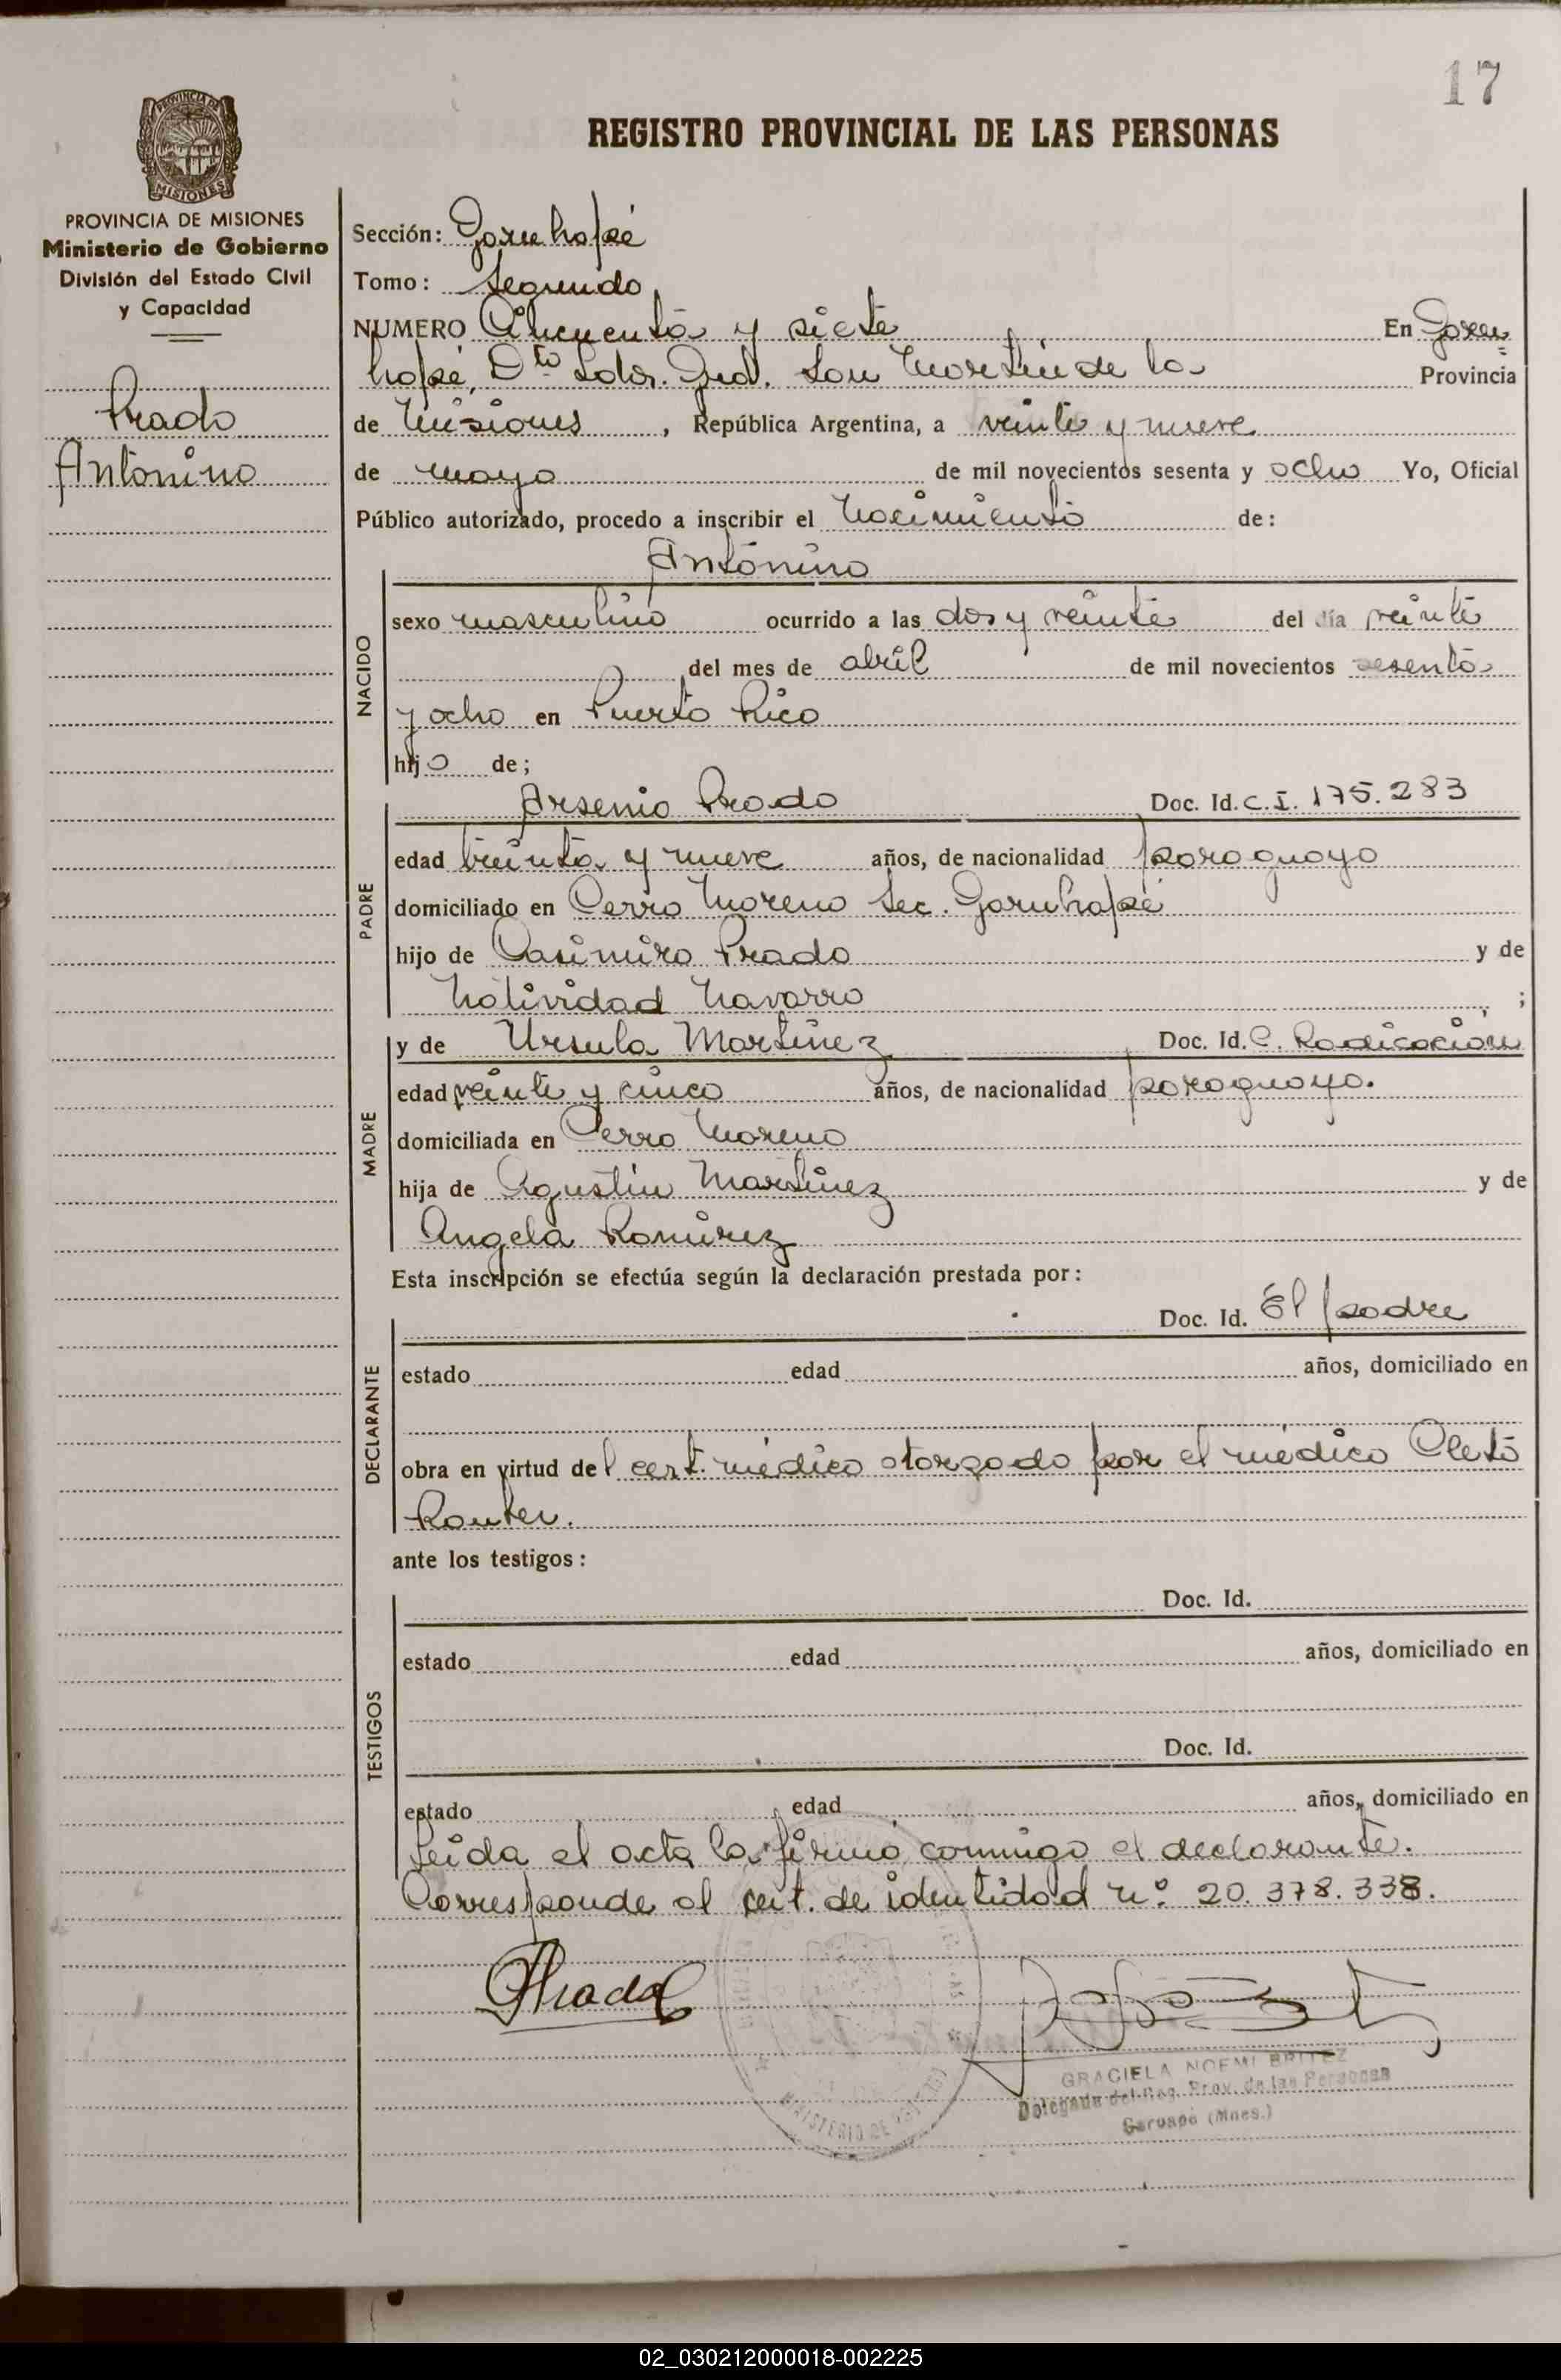 17
REGISTRO PROVINCIAL DE LAS PERSONAS
PROVINCIA DE
MISIONES
PROVINCIA DE MISIONES
Ministerio de Gobierno
División del Estado Civil
y Capacidad
Prado
Antonino
Sección: Garuhapé
Tomo: Segundo
NUMERO Cincuenta y siete En Garu=
hapé, Dto Ldor. Gral. San Martín de la Provincia
de Misiones, República Argentina, a veinte y nueve
de mayo de mil novecientos sesenta y ocho Yo, Oficial
Público autorizado, procedo a inscribir el Nacimiento de:
Antonino
NACIDO
sexo masculino ocurrido a las dos y veinte del día veinte
del mes de abril de mil novecientos sesenta
y ocho en Puerto Rico
hijo de;
PADRE
Arsenio Prado Doc. Id. C.I. 175.283
edad treinta y nueve años, de nacionalidad paraguayo
domiciliado en Cerro Moreno Sec. Garuhapé
hijo de Casimiro Prado y de
Natividad Navarro ;
MADRE
y de Ursula Martinez Doc. Id. C. Radicación
edad veinte y cinco años, de nacionalidad paraguaya.
domiciliada en Cerro Moreno
hija de Agustin Martinez y de
Angela Ramirez
Esta inscripción se efectúa según la declaración prestada por:
DECLARANTE
Doc. Id. El padre
estado edad años, domiciliado en
obra en virtud del cert. médico otorgado por el médico Cleto
ante los testigos:
TESTIGOS
Doc. Id.
estado edad años, domiciliado en
Doc. Id.
estado edad años, domiciliado en
Leida el acta la firmó conmigo el declarante.
Corresponde al cert. de identidad nº. 20.378.338.
Prado
GRACIELA NOEMI BRITEZ
Delegada del Reg. Prov. de las Personas
Garuapé (Mnes.)
MINISTERIO DE
02_030212000018-002225